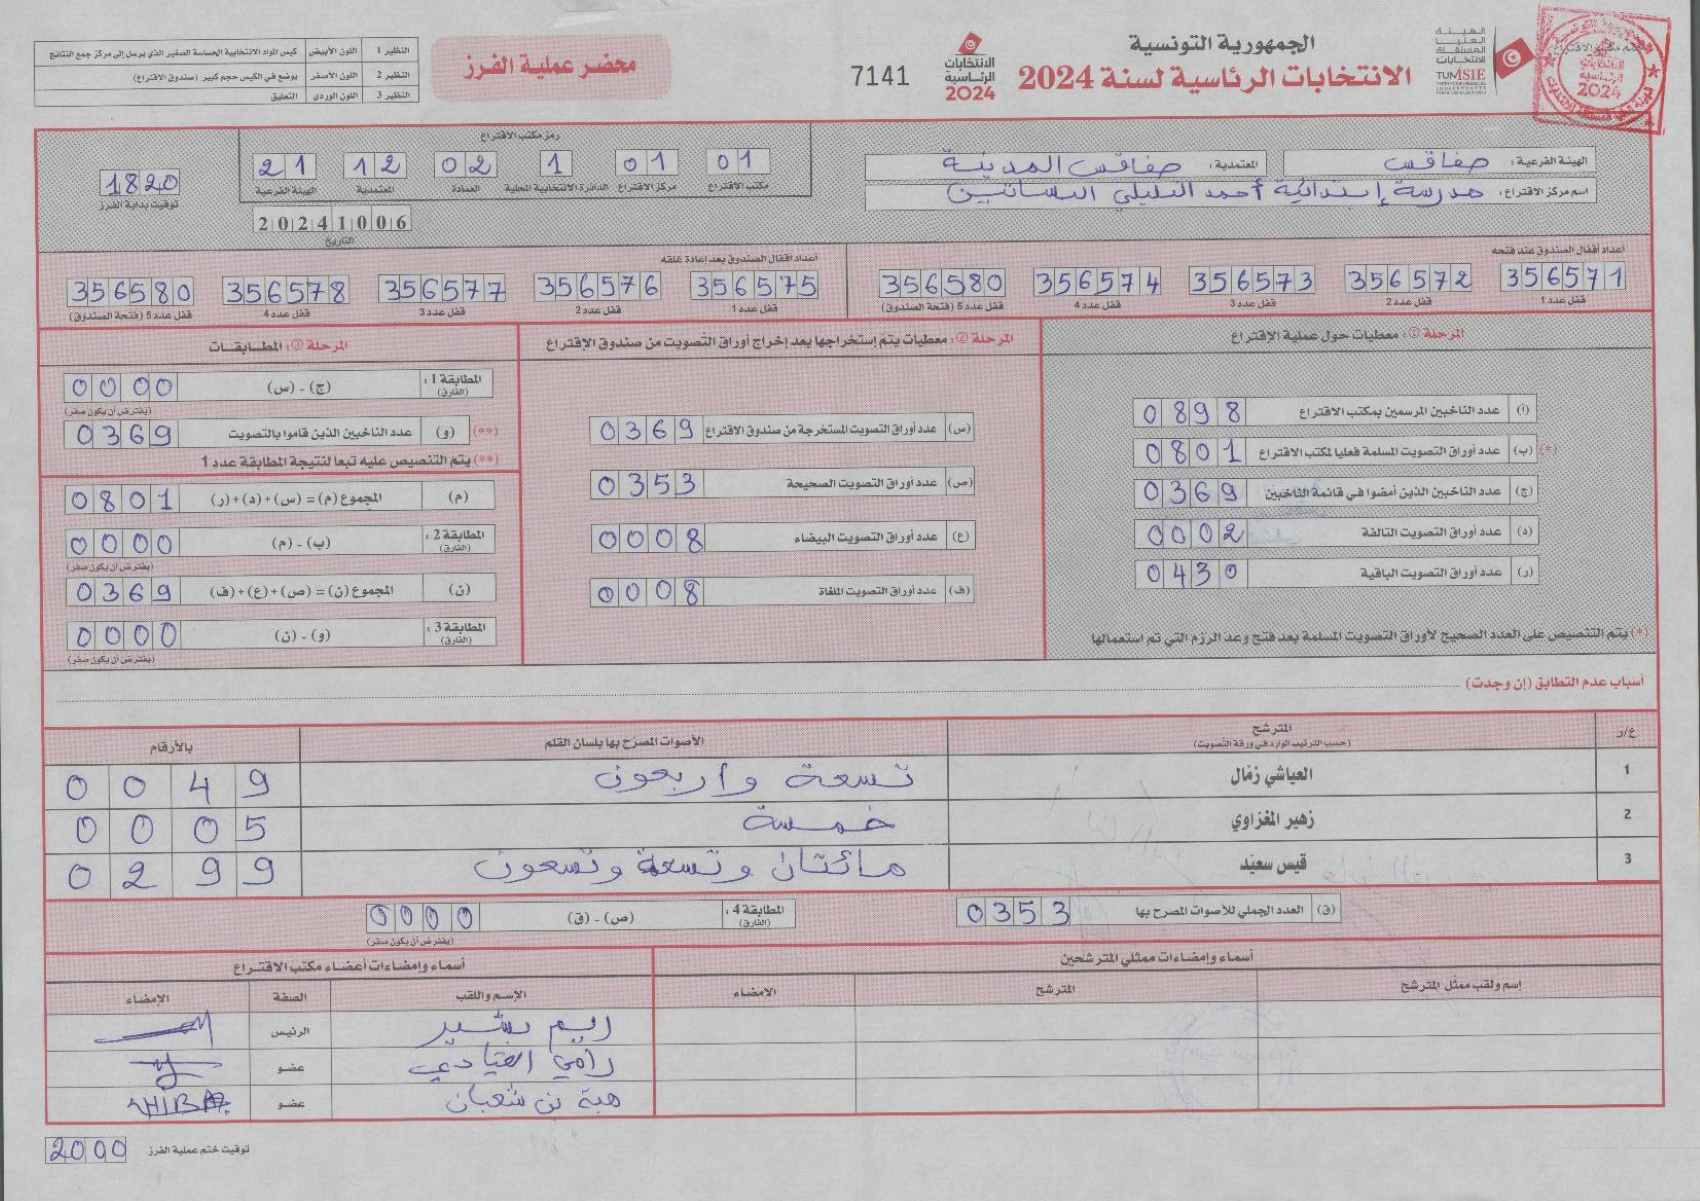 الجمهورية التونسية
الانتخابات الرئاسية لسنة 2024
الهيئة العليا المستقلة للانتخابات
الانتخابات الرئاسية 2024
7141
محضر عملية الفرز
النظير 1 اللون الأبيض كيس المواد الانتخابية الحساسة الصغير الذي يرسل إلى مركز جمع النتائج
النظير 2 اللون الأصفر يوضع في الكيس حجم كبير (صندوق الاقتراع)
النظير 3 اللون الوردي التعليق
الهيئة الفرعية: صفاقس المعتمدية: صفاقس المدينة
اسم مركز الاقتراع: مدرسة إبتدائية أحمد التليلي البساتين
رمز مكتب الاقتراع
01 01 1 02 12 21
مكتب الاقتراع مركز الاقتراع الدائرة الانتخابية المحلية العمادة المعتمدية الهيئة الفرعية
20241006
التاريخ
1820
توقيت بداية الفرز
أعداد أقفال الصندوق عند فتحه
356571 356572 356573 356574 356580
قفل عدد 1 قفل عدد 2 قفل عدد 3 قفل عدد 4 قفل عدد 5 (فتحة الصندوق)
أعداد أقفال الصندوق بعد إعادة غلقه
356575 356576 356577 356578 356580
قفل عدد 1 قفل عدد 2 قفل عدد 3 قفل عدد 4 قفل عدد 5 (فتحة الصندوق)
المرحلة ①: معطيات حول عملية الإقتراع
(أ) عدد الناخبين المرسمين بمكتب الاقتراع 0898
(*) (ب) عدد أوراق التصويت المسلمة فعليا لمكتب الاقتراع 0801
(ج) عدد الناخبين الذين أمضوا في قائمة الناخبين 0369
(د) عدد أوراق التصويت التالفة 0002
(ر) عدد أوراق التصويت الباقية 0430
(*) يتم التنصيص على العدد الصحيح لأوراق التصويت المسلمة بعد فتح وعد الرزم التي تم استعمالها
المرحلة ②: معطيات يتم إستخراجها بعد إخراج أوراق التصويت من صندوق الإقتراع
(س) عدد أوراق التصويت المستخرجة من صندوق الاقتراع 0369
(ص) عدد أوراق التصويت الصحيحة 0353
(ع) عدد أوراق التصويت البيضاء 0008
(ف) عدد أوراق التصويت الملغاة 0008
المرحلة ③: المطابقات
المطابقة 1: (الفارق) (ج) - (س) 0000
(يفترض أن يكون صفر)
(**) (و) عدد الناخبين الذين قاموا بالتصويت 0369
(**) يتم التنصيص عليه تبعا لنتيجة المطابقة عدد 1
(م) المجموع (م) = (س) + (د) + (ر) 0801
المطابقة 2: (الفارق) (ب) - (م) 0000
(يفترض أن يكون صفر)
(ن) المجموع (ن) = (ص) + (ع) + (ف) 0369
المطابقة 3: (الفارق) (و) - (ن) 0000
(يفترض أن يكون صفر)
أسباب عدم التطابق (إن وجدت)
ع/ر المترشح الأصوات المصرح بها بلسان القلم بالأرقام
(حسب الترتيب الوارد في ورقة التصويت)
1 العياشي زمّال تسعة واربعون 0049
2 زهير المغزاوي خمسة 0005
3 قيس سعيّد مائتان وتسعة وتسعون 0299
(ق) العدد الجملي للأصوات المصرح بها 0353 المطابقة 4: (الفارق) (ص) - (ق) 0000
(يفترض أن يكون صفر)
أسماء وإمضاءات ممثلي المترشحين أسماء وإمضاءات أعضاء مكتب الاقتراع
إسم ولقب ممثّل المترشح المترشح الامضاء الإسم واللقب الصفة الإمضاء
ريم بشير الرئيس
رامي العيادي عضو
هبة بن شعبان عضو HIBA
توقيت ختم عملية الفرز 2000